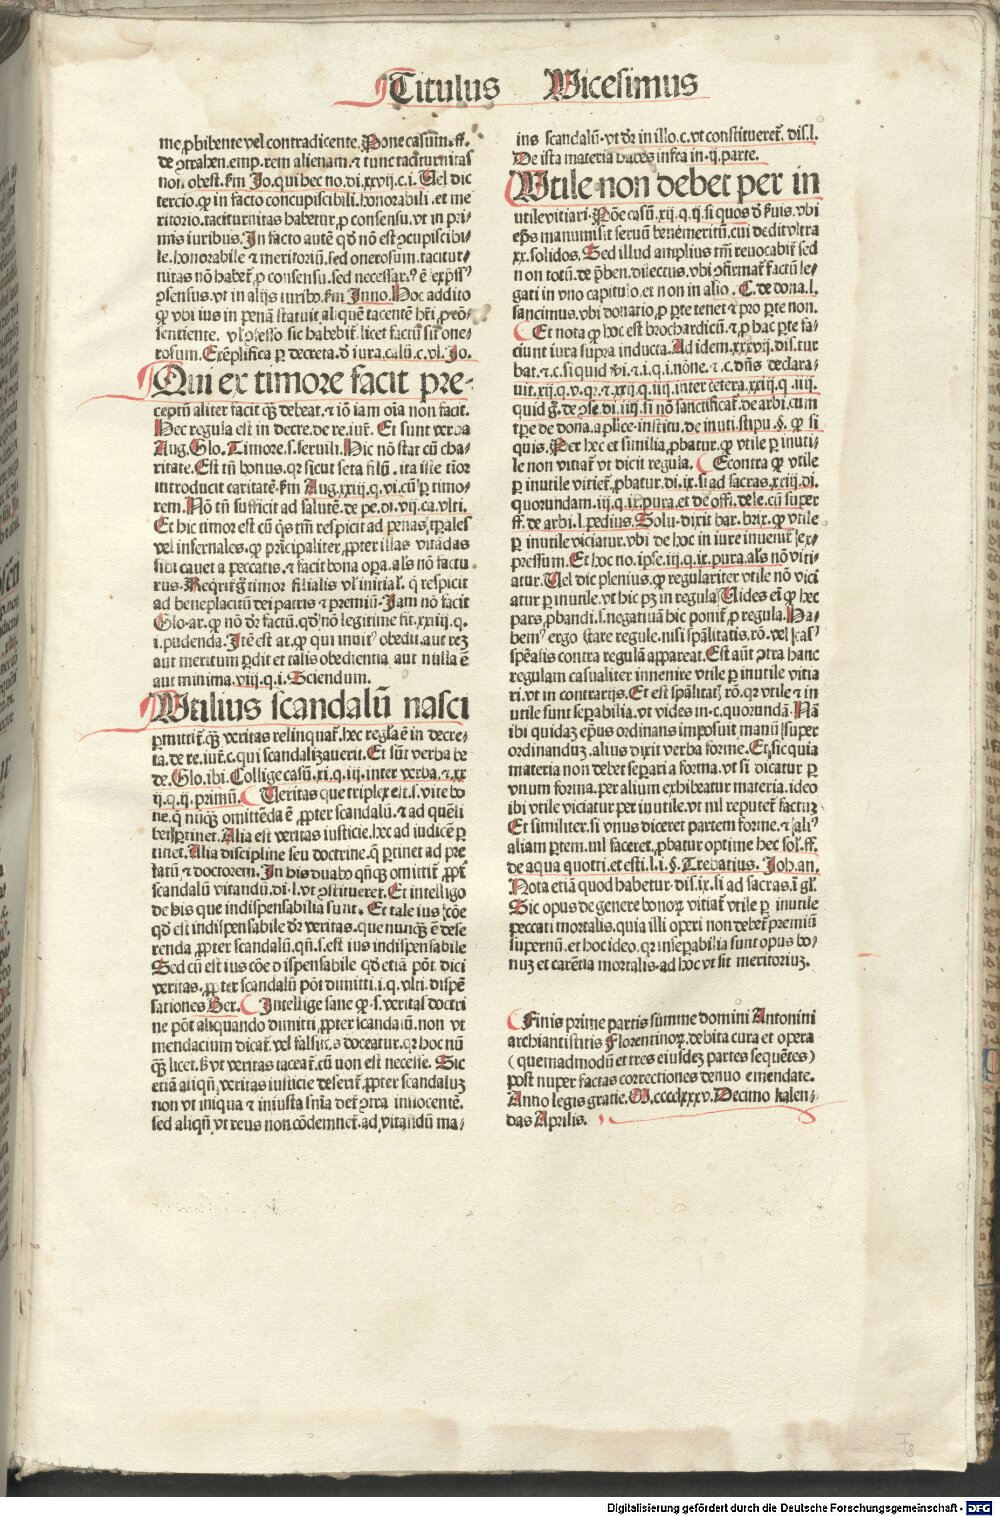 Titulus Vicesimus
me ꝓhibente vel contradicente. Pone casum. ff.
de ꝯtrahen. emp. rem alienam. ⁊ tunc taciturnitas
non obest. ẜm Jo. qui hec no. di. xxvij. c. i. Uel dic
tercio. ꝙ in facto concupiscibili. honorabili. et me
ritorio. taciturnitas habetur, ꝓ consensu. vt in pri⸗
mis iuribus. In facto autē qd̕ nō est ꝯcupiscibi⸗
le. honorabile ⁊ meritoriū. sed onerosum. tacitur⸗
nitas nō habet̃, ꝓ consensu. sed necessar.
ꝯsensus. vt in alijs iurib. ẜm Inno. Hoc addito
ꝙ vbi ius in penā statuit aliquē tacentē
sentiente. sic habebit̃. licet factū sit one⸗
rosum. Exēplifica ꝑ decreta. d̕ iura. calū. c. vl. Jo.
Qui ex timore facit pre⸗
ceptū aliter facit qꝫ debeat. ⁊ iō iam oīa non facit.
Hec regula est in decre. de re. iur̄. Et sunt verba
Aug. Glo. Timore. s. seruili. Hic nō stat cū cha⸗
ritate. Est tñ bonus. qꝛ sicut seta filū. ita iste tīor
introducit caritatē. ẜm Aug. xxiij. q. vi. cū ꝑ timo⸗
rem. Nō tñ sufficit ad salutē. de pe. di. vij. ca. vlti.
Et hic timor est cū qs tm̄ respicit ad penas, tꝑales
vel infernales. ꝙ prīcipaliter, ꝓpter illas vitādas
sibi cauet a peccatis. ⁊ facit bona oꝑa. als nō factu
rus. Reqrit̃ g̃ timor filialis vl̕ initial. q̄ respicit
ad beneplacitū dei patris ⁊ premiū. Jam nō facit
Glo. ar. ꝙ nō dr̄ factū. qd̕ nō legitime fit. xxiij. q.
i. pudenda. Itē est ar. ꝙ qui inuit obedit. aut rez
aut meritum ꝑdit et talis obedientia aut nulla ē
aut minima. viij. q. i. Sciendum.
Utilius scandalū nasci
ꝑmittit̃. qꝫ veritas relinquat̃. hec regla ē in decre⸗
ta. de re. iur̄. c. qui scandalizauerit. Et sūt verba be
de. Glo. ibi. Collige casū. xi. q. iij. inter verba. ⁊. xx
ij. q. ij. primū. Ueritas que triplex est. s. vite bo
ne. q̄ nūqꝫ omittēda ē, ꝓpter scandalū. ⁊ ad quēli
bet ꝑtinet. Alia est veritas iusticie. hec ad iudicē ꝑ
tinet. Alia discipline seu doctrine. q̄ ꝑtinet ad pre
latū ⁊ doctorem. In his duab qn̄qꝫ omittit̃, ꝓpt̕
scandalū vitandū. di. l. vt ꝯstitueret. Et intelligo
de his que indispensabilia sunt. Et tale ius cōe
qd̕ est indispensabile dr̄ veritas. que nunqꝫ ē dese
renda, ꝓpter scandalū. qn̄. s. est ius indispensabile
Sed cū est ius cōe dispensabile qd̕ etiā pōt dici
veritas. ꝓpter scandalū pōt dimitti. i. q. vlti. dispē
sationes Ber. Intellige sane ꝙ. s. veritas doctri
ne pōt aliquando dimitti, ꝓpter scandalū. non vt
mendacium dicat̃. vel falsitas doceatur. qꝛ hoc nū
qꝫ licet. sꝫ vt veritas taceat̃. cū non est necesse. Sic
etiā aliqn̄, veritas iusticie deserit̃, ꝓpter scandaluꝫ
non vt iniqua ⁊ iniusta snīa det̃ ꝯtra innocentē.
sed aliqn̄ vt reus non cōdemnet̃. ad vitandū ma⸗
ius scandalū. vt dr̄ in illo. c. vt constitueret̃. dis. l.
De ista materia habes infra in. ij. parte.
Utile non debet per in
utile vitiari. Pōe casū. xij. q. ij. si quos d̕ ẜuis. vbi
ep̄s manumisit seruū benemeritū. cui dedit vltra
xx. solidos. Sed illud amplius tm̄ reuocabit̃ sed
non totū. de p̄ben. dilectus. vbi ꝯfirmat̃ factū le⸗
gati in vno capitulo. et non in alio. C. de dona. l.
sancimus. vbi donatio, ꝓ parte tenet ⁊ pro parte non.
Et nota ꝙ hoc est brochardicū. ⁊, ꝓ hac parte fa⸗
ciunt iura supra inducta. Ad idem. xxxvij. dis. tur
bat. ⁊. c. si quid v̄i. ⁊. i. q. i. nōne. ⁊. c. dn̄s declara⸗
uit. xij. q. v. qꝛ. ⁊. xxij. q. iiij. inter cetera. xxiij. q. iiij.
quid g̃. de ꝯse. di. iiij. si nō sanctificat̃. de arbi. cum
tꝑe. de dona. a plice. institu. de inuti. stipu. §. ꝙ si
quis. Per hec et similia, ꝓbatur. ꝙ vtile ꝑ inuti⸗
le non vitiat̃ vt dicit regula. Econtra ꝙ vtile
ꝑ inutile vitiet̃, ꝓbatur. di. ix. si ad sacras. xciij. di.
quorundam. iij. q. ix. pura. et de offi. dele. cū super
ff. de arbi. l. pedius. Solu. dixit bar. brix. ꝙ vtile
ꝑ inutile viciatur. vbi de hoc in iure inuenit̃ ex⸗
pressum. Et hoc no. ipse. iij. q. ix. pura. als nō viti⸗
atur. Uel dic plenius. ꝙ regulariter vtile nō vici
atur ꝑ inutile. vt hic pꝫ in regula. Uides eī ꝙ hec
pars, ꝓbandi. l. negatiuā hic ponit̃, ꝓ regula. Ha⸗
bem ergo stare regule. nisi sꝑalitatis. rō. vel
speālis contra regulā appareat. Est aūt ꝯtra hanc
regulam casualiter inuenire vtile ꝑ inutile vitia
ri. vt in contrarijs. Et est sꝑalitat̕ rō. qꝛ vtile ⁊ in
utile sunt seꝑabilia. vt vides in. c. quorundā. Nā
ibi quidaꝫ ep̄us ordinans imposuit manū super
ordinanduꝫ. alius dixit verba forme. Et sic quia
materia non debet seꝑari a forma. vt si dicatur ꝑ
vnum forma. per alium exhibeatur materia. ideo
ibi vtile viciatur per inutile. vt nil reputet̃ factuꝫ
Et similiter. si vnus diceret partem forme. ⁊
aliam ꝑtem. nil faceret, ꝓbatur optime hec sol. ff.
de aqua quotti. et esti. l. i. §. Trebatius. Joh. an.
Nota etiā quod habetur. dis. ix. si ad sacras. ī gl.
Sic opus de genere bonoꝝ vitiat̃ vtile ꝑ inutile
peccati mortalis. quia illi operi non debet̃ premiū
supernū. et hoc ideo. qꝛ inseꝑabilia sunt opus bo⸗
nuꝫ et carētia mortalis. ad hoc vt sit meritoriuꝫ.
Finis prime partis summe domini Antonini
archiantistitis Florentinoꝝ. debita cura et opera
(quemadmodū et tres eiusdeꝫ partes sequētes)
post nuper factas correctiones denuo emendate.
Anno legis gratie. M. cccclxxxv. Decimo kalen⸗
das Aprilis.
Digitalisierung gefördert durch die Deutsche Forschungsgemeinschaft - DFG